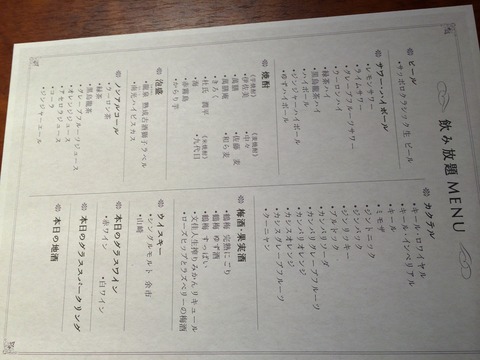 飲み放題 MENU
ビール
・サッポロクラシック生 ビール
サワー・ハイボール
・レモンサワー
・ライムサワー
・グレープフルーツサワー
・ウーロンハイ
・緑茶ハイ
・黒烏龍茶ハイ
・ハイボール
・ジンジャーハイボール
・ゆずハイボール
焼酎
〈芋焼酎〉 〈麦焼酎〉
・伊佐美 ・中々
・萬膳 ・佐藤 麦
・萬膳庵 ・和ら麦
・きろく
・杜氏 潤平 〈米焼酎〉
・海 ・九代目
・赤霧島
・からり芋
泡盛
・龍泉 熟成古酒獅子ラベル
・南光ハイビスカス
ノンアルコール
・ウーロン茶
・緑茶
・黒烏龍茶
・グレープフルーツジュース
・オレンジジュース
・アセロラジュース
・コーラ
・ジンジャーエール
カクテル
・キール・ロワイヤル
・キール・インペリアル
・キール
・ミモザ
・ジントニック
・ジンバック
・ジンリッキー
・ブルドッグ
・カンパリソーダ
・カンパリグレープフルーツ
・カンパリオレンジ
・カシスオレンジ
・カシスグレープフルーツ
・ケーニャン
梅酒・果実酒
・鶴梅 完熟にごり
・鶴梅 ゆず酒
・鶴梅 すっぱい
・文佳人生搾りみかんリキュール
・ローズヒップとラズベリーの梅酒
ウイスキー
・シングルモルト 余市
・山崎
本日のグラスワイン
・赤ワイン ・白ワイン
本日のグラススパークリング
本日の地酒